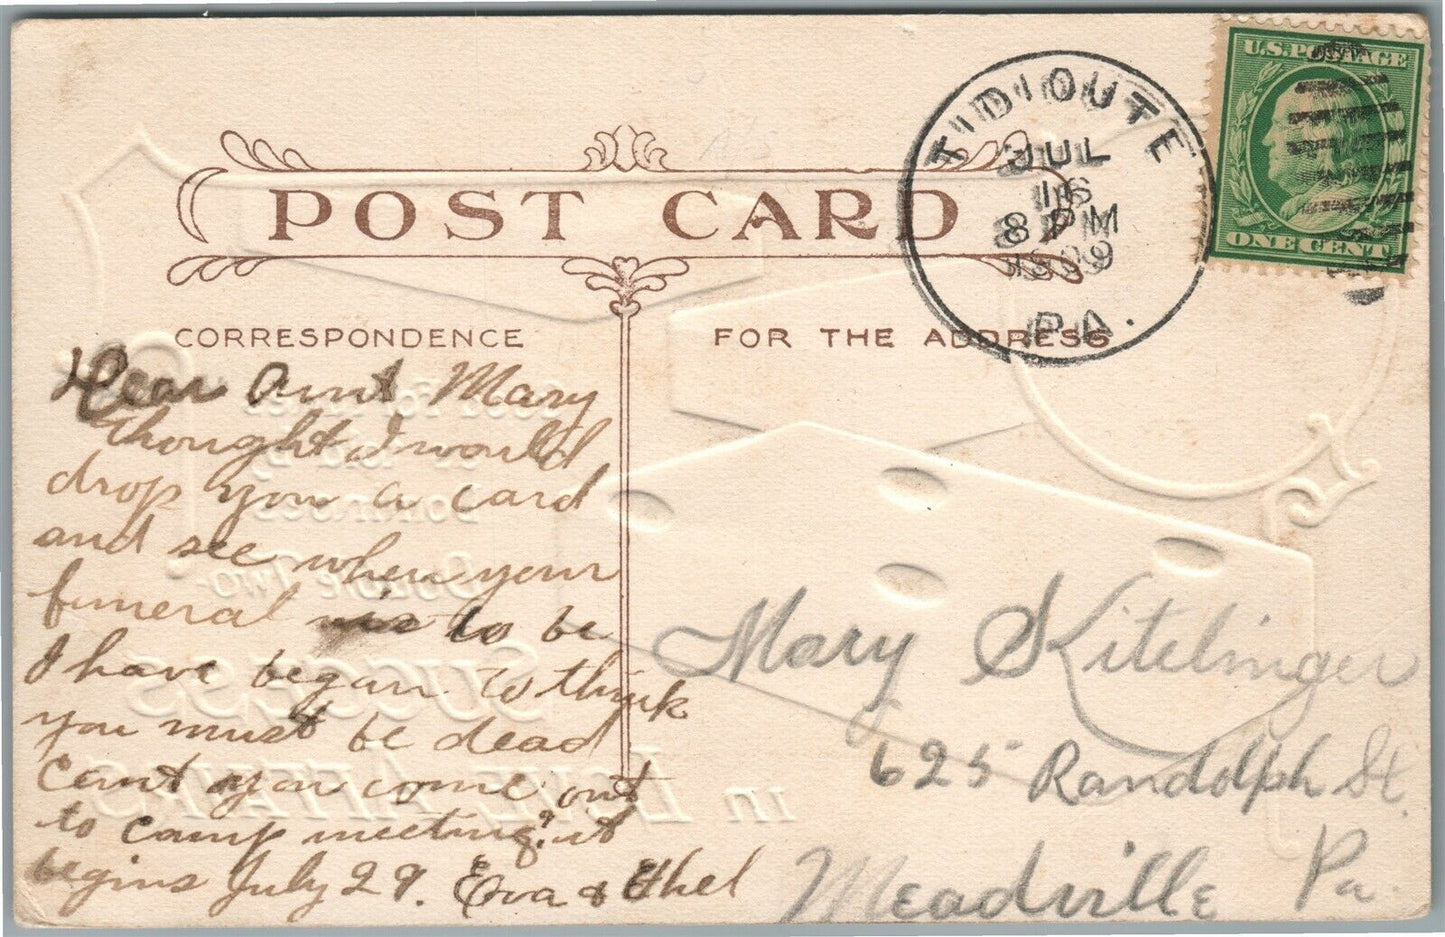 U.S. POSTAGE
ONE CENT
TIDIOUTE
JUL
16
8 PM
1909
PA.
POST CARD
CORRESPONDENCE
FOR THE ADDRESS
Dear Aunt Mary
thought I would
drop you a card
and see when your
funeral is to be
I have began to think
you must be dead
cant you come out
to camp meeting? it
begins July 29. Eva & Ethel
Mary Kitelinger
625 Randolph St.
Meadville Pa.
SUCCESS
in LOVE AFFAIRS